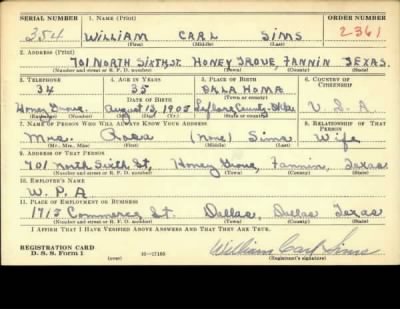 SERIAL NUMBER 1. Name (Print) ORDER NUMBER
354 WILLIAM CARL SIMS 2361
(First) (Middle) (Last)
2. Address (Print)
701 NORTH SIXTH ST. HONEY GROVE, FANNIN TEXAS.
(Number and street or R. F. D. number) (Town) (County) (State)
3. Telephone 4. Age in Years 5. Place of Birth 6. Country of Citizenship
34 35 OKLAHOMA
Date of Birth (Town or county)
Honey Grove. August 13, 1905 Leflore County, Okla U.S.A
(Exchange) (Number) (Mo.) (Day) (Yr.) (State or country)
7. Name of Person Who Will Always Know Your Address 8. Relationship of That Person
Mrs. Rosa (none) Sims Wife
(Mr., Mrs., Miss) (First) (Middle) (Last)
9. Address of That Person
701 North Sixth St, Honey Grove, Fannin, Texas
(Number and street or R. F. D. number) (Town) (County) (State)
10. Employer's Name
W. P. A
11. Place of Employment or Business
1713 Commerce St. Dallas, Dallas Texas
(Number and street or R. F. D. number) (Town) (County) (State)
I Affirm That I Have Verified Above Answers and That They Are True.
REGISTRATION CARD
D. S. S. Form 1 (over) 16—17105 William Carl Sims
(Registrant's signature)